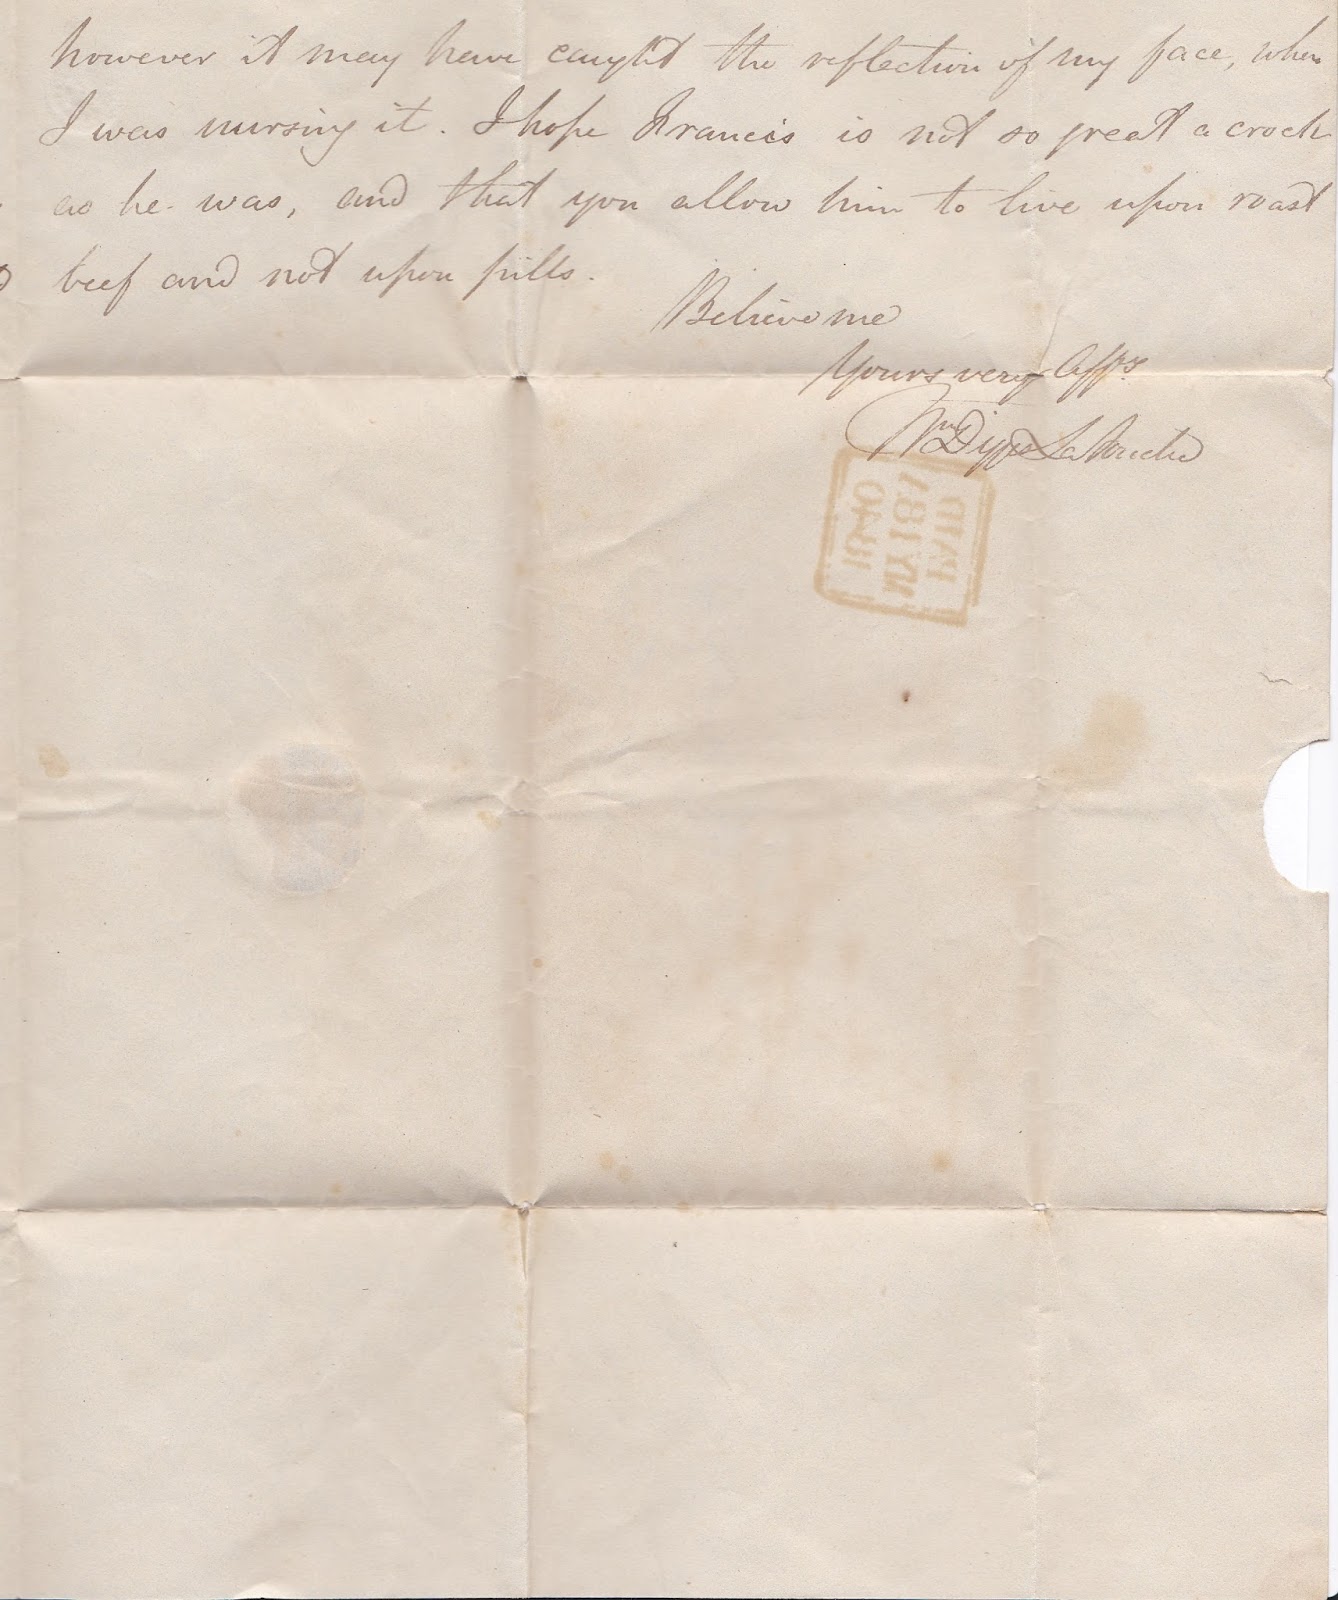 however it may have caught the reflection of my face, when
I was nursing it. I hope Francis is not so great a crock
as he was, and that you allow him to live upon roast
beef and not upon pills.
Believe me
Yours very Affly.
Wm Digges La Touche
PAID
MY 18
1840